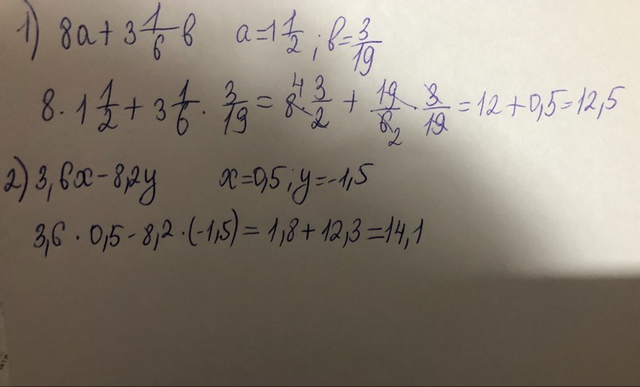 1) 8a + 3 1/6 b a=1 1/2; b=3/19
8 · 1 1/2 + 3 1/6 · 3/19 = 8 4 · 3/2 + 19/6 2 · 3/19 = 12 + 0,5 = 12,5
2) 3,6x - 8,2y x=0,5; y=-1,5
3,6 · 0,5 - 8,2 · (-1,5) = 1,8 + 12,3 = 14,1